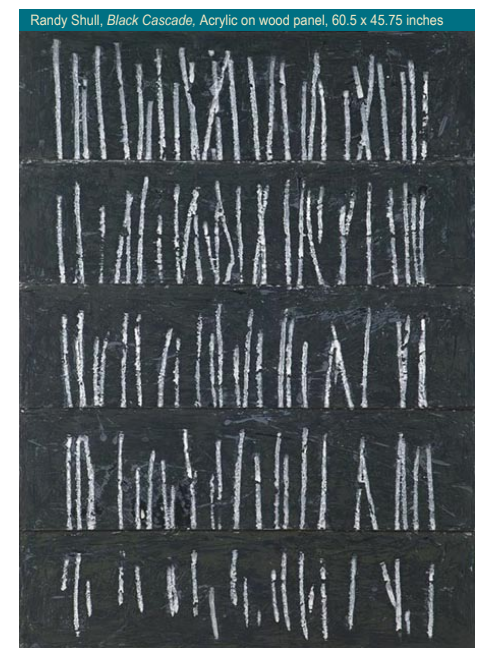 Randy Shull, Black Cascade, Acrylic on wood panel, 60.5 x 45.75 inches